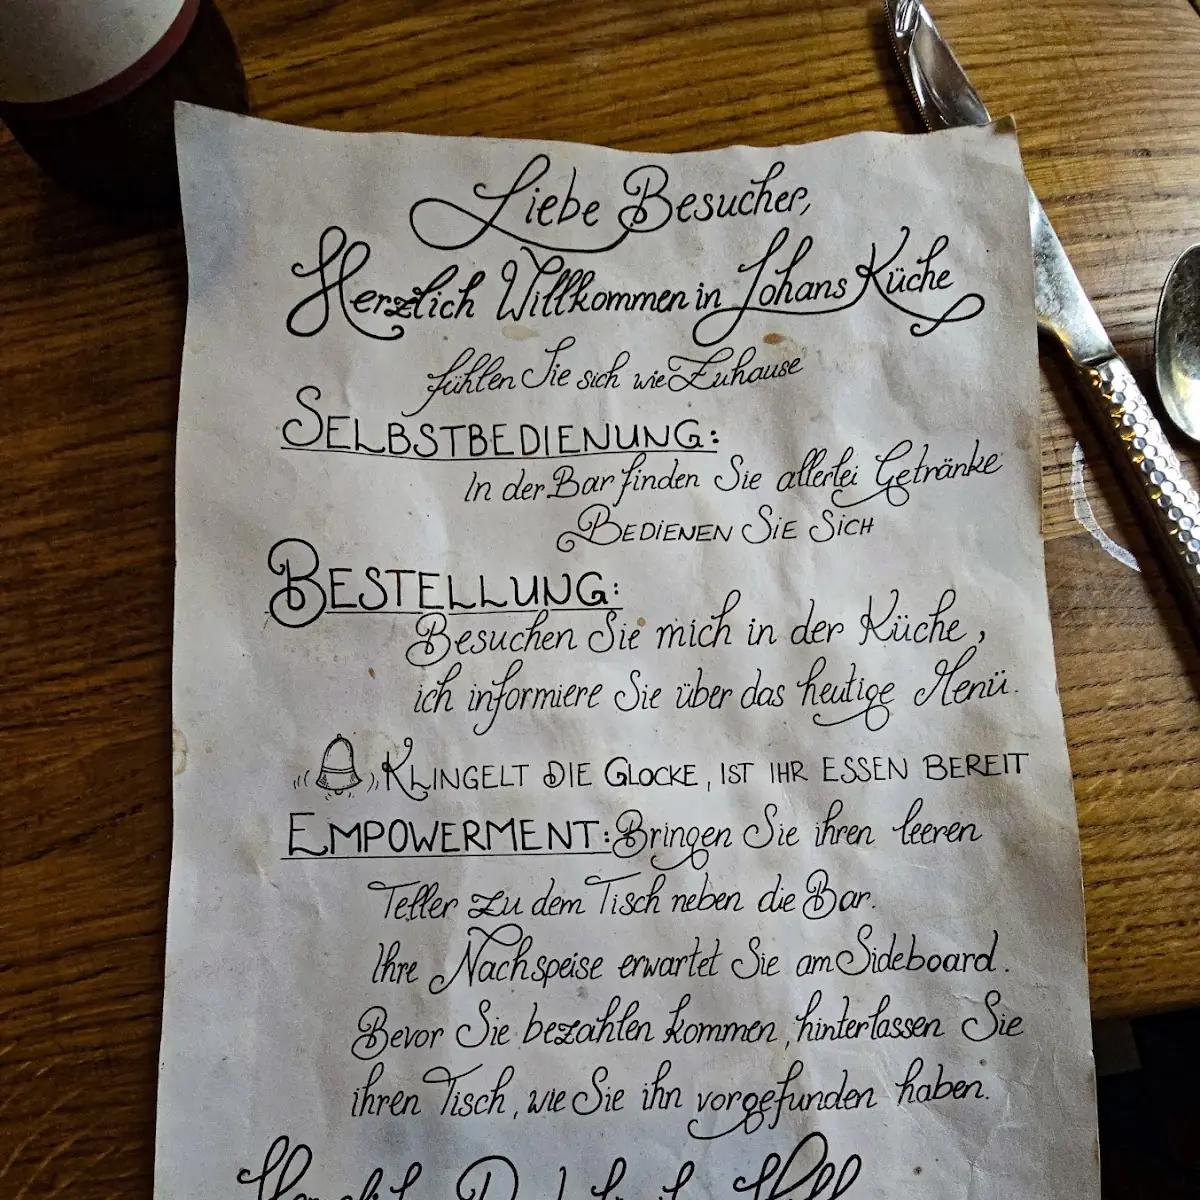 Liebe Besucher,
Herzlich Willkommen in Johans Küche
fühlen Sie sich wie Zuhause
SELBSTBEDIENUNG:
In der Bar finden Sie allerlei Getränke
BEDIENEN SIE SICH
BESTELLUNG:
Besuchen Sie mich in der Küche,
ich informiere Sie über das heutige Menü.
KLINGELT DIE GLOCKE, IST IHR ESSEN BEREIT
EMPOWERMENT: Bringen Sie ihren leeren
Teller zu dem Tisch neben die Bar.
Ihre Nachspeise erwartet Sie am Sideboard.
Bevor Sie bezahlen kommen, hinterlassen Sie
ihren Tisch, wie Sie ihn vorgefunden haben.